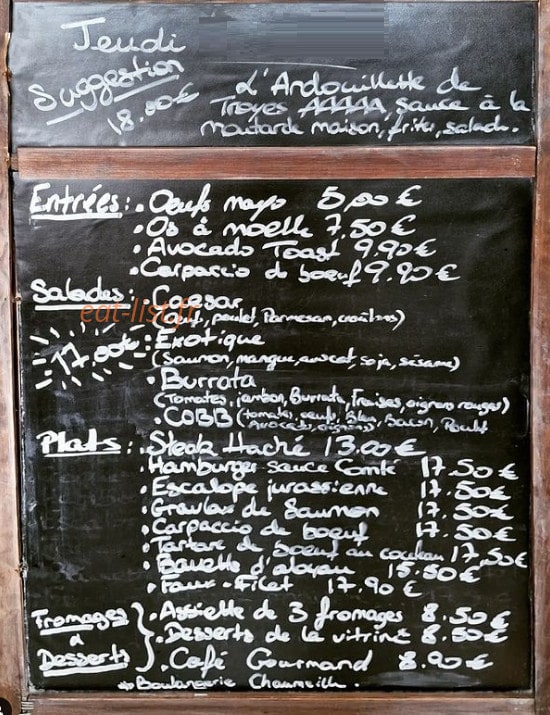 Jeudi
Suggestion
18.00€
L'Andouillette de
Troyes AAAAA, sauce à la
moutarde maison, frites, salade.
Entrées: • Oeufs mayo 5,00€
• Os à moelle 7.50€
• Avocado Toast 9.90€
• Carpaccio de boeuf 9.90€
Salades: • Caesar
eat-list.fr
(Oeuf, poulet, Parmesan, croûtons)
17.00€ • Exotique
(Saumon, mangue, avocat, soja, sésame)
• Burrata
(Tomates, jambon, Burrata, Fraises, oignons rouges)
• COBB (tomates, oeufs, Bleu, Bacon, Poulet
Avocado, oignons)
Plats: • Steak Haché 13.00€
• Hamburger sauce Comté 17.50€
• Escalope jurassienne 17.50€
• Gravlax de Saumon 17.50€
• Carpaccio de boeuf 17.50€
• Tartare de boeuf au couteau 17,50€
• Bavette d'aloyau 15.50€
• Faux-Filet 17.90€
Fromages & Desserts
• Assiette de 3 fromages 8.50€
• Desserts de la vitrine 8.50€
• Café Gourmand 8.90€
* Boulangerie